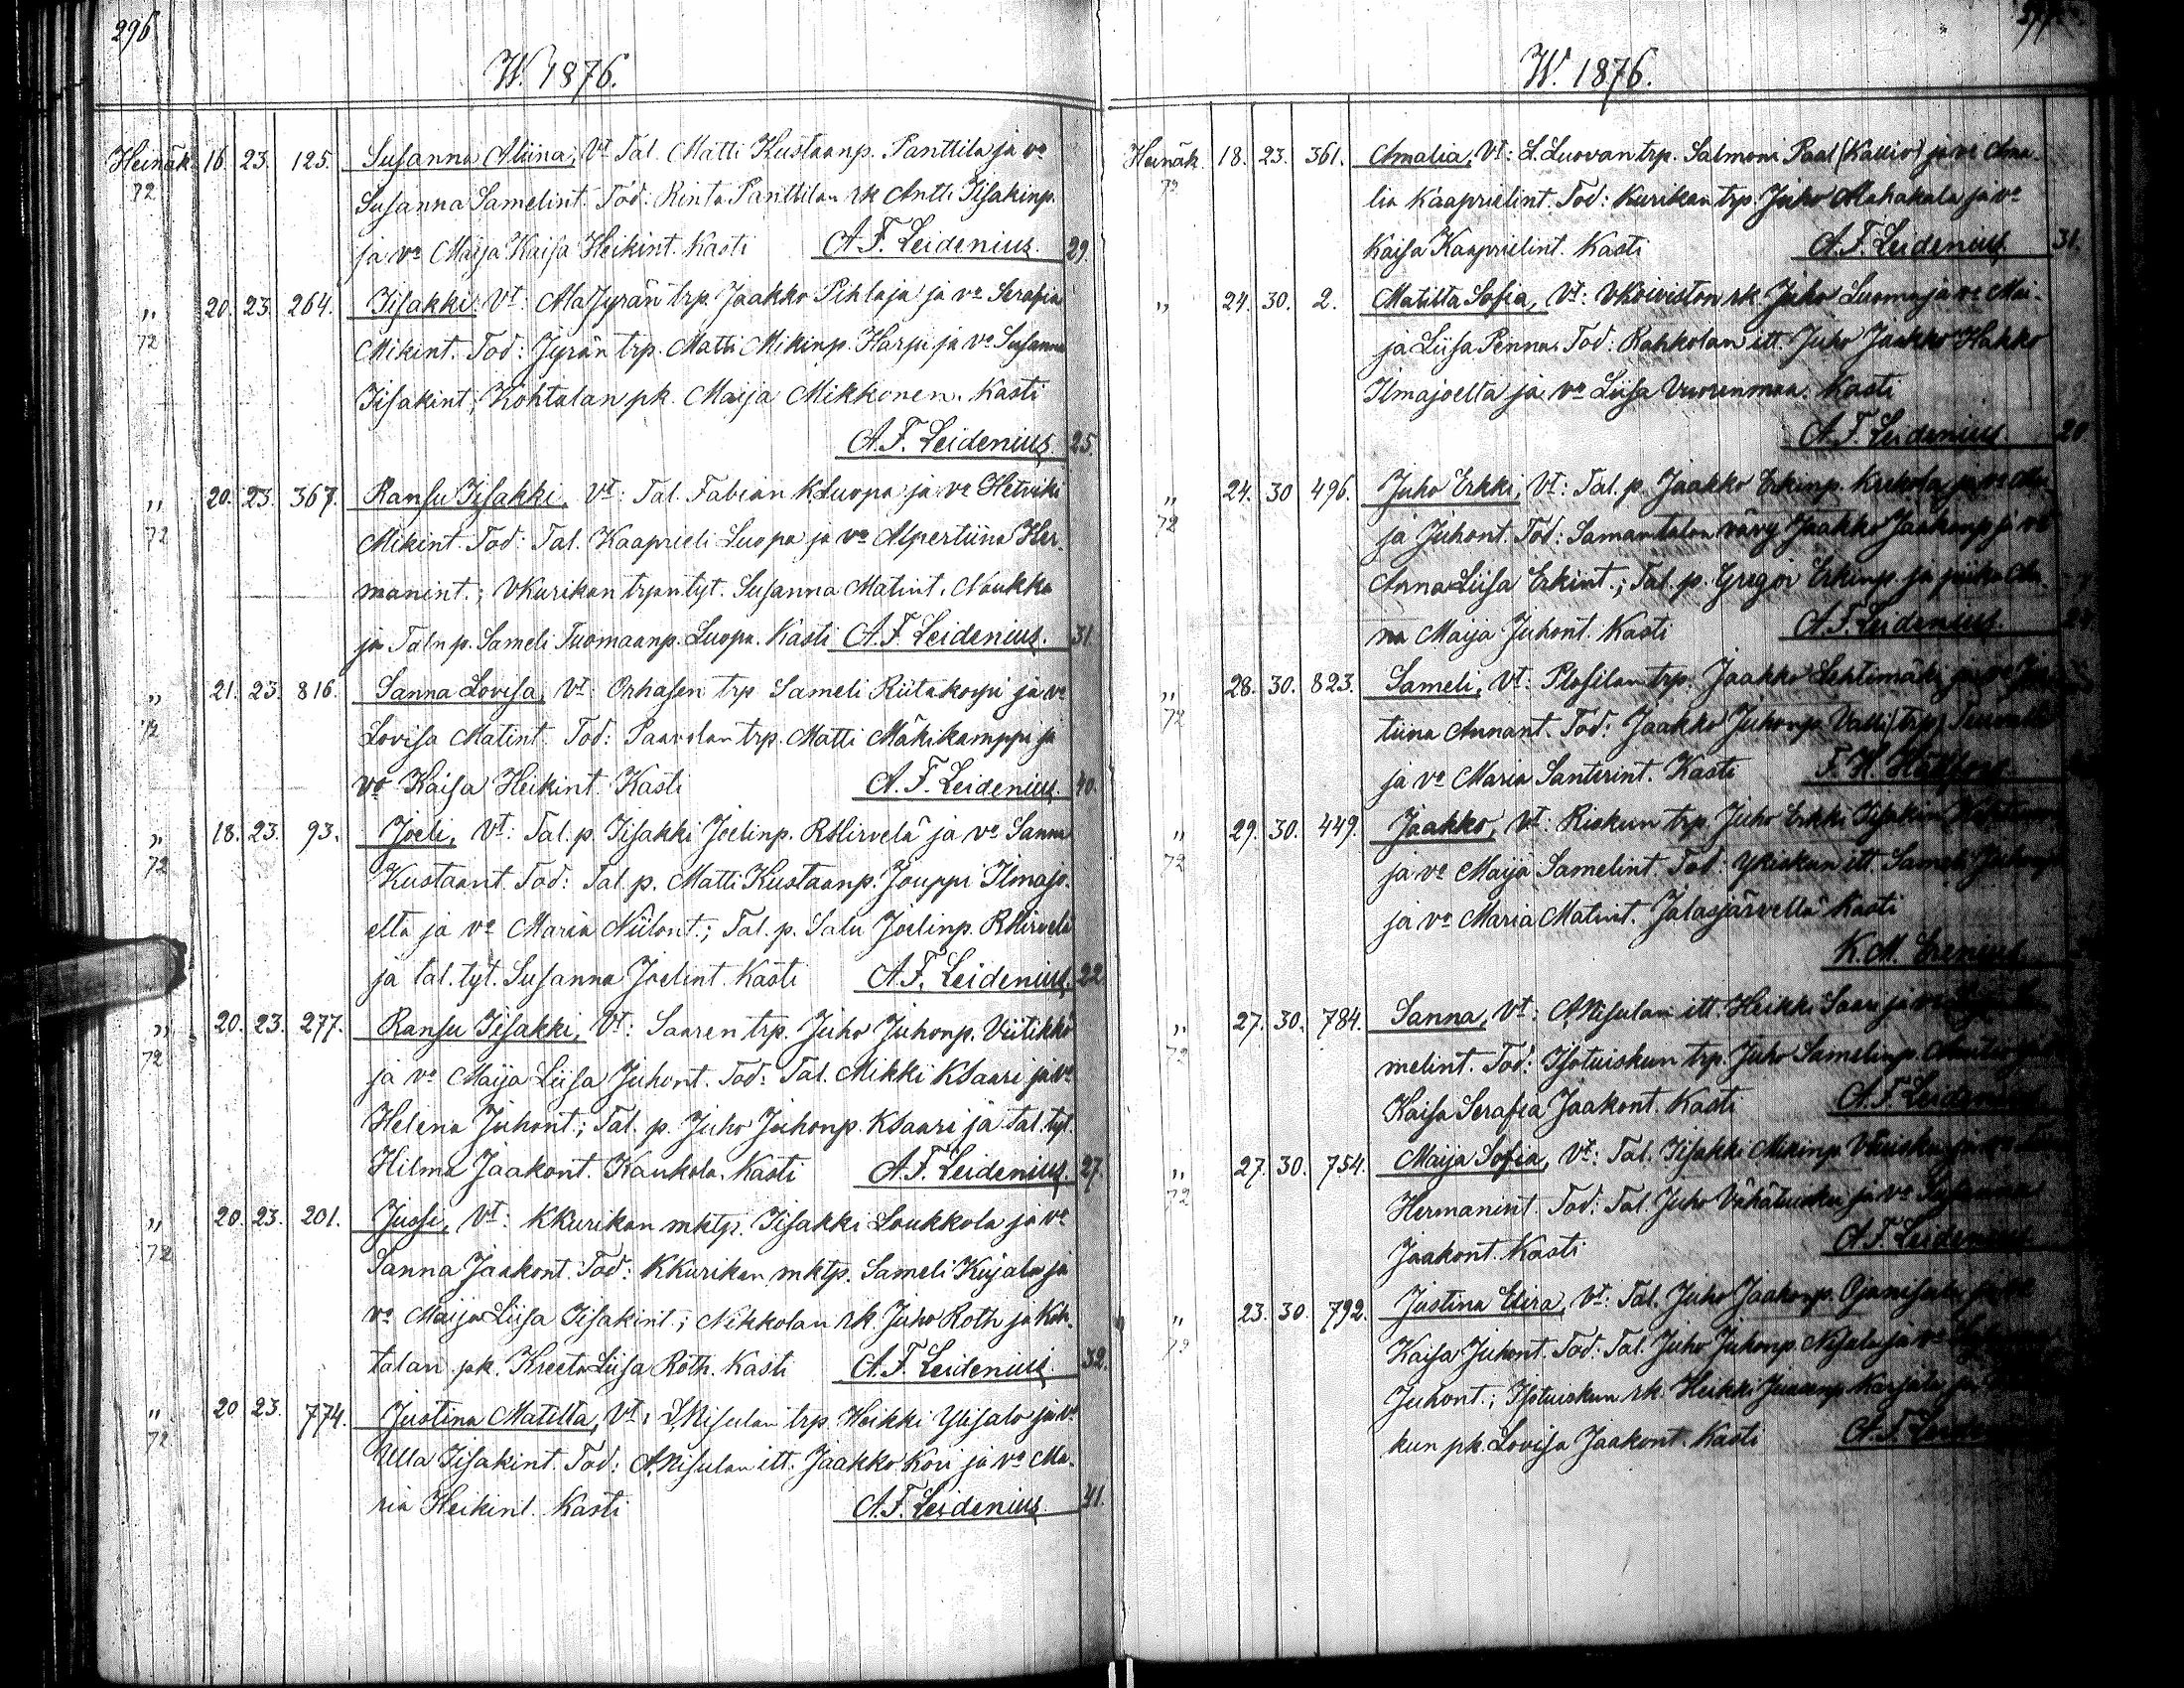 296
W. 1876.
Heinäk. 16. 23. 125. Susanna Aliina, Vt Tal. Matti Kustaanp. Panttila ja vo
72 Susanna Samelint. Tod: Rinta Panttilan rk Antti Iisakinp.
ja vo Maija Kaisa Heikint. Kasti A. F. Leidenius. 29.
„ 20. 23. 264. Iisakki, Vt: AlaJyrän trp. Jaakko Pihlaja ja vo Serafia
72 Mikint. Tod: Jyrän trp. Matti Mikinp. Harju ja vo Susanna
Iisakint; Kohtalan pk. Maija Mikkonen. Kasti
A. F. Leidenius. 25.
„ 20. 23. 367. Ransu Iisakki, Vt: Tal. Fabian KLuopa ja vo Hetviki
72 Mikint. Tod: Tal. Kaaprieli Luopa ja vo Alpertiina Her-
manint.; VKurikan trpn tyt. Susanna Matint. Naukka
ja Taln p. Sameli Tuomaanp. Luopa. Kasti A. F. Leidenius. 31.
„ 21. 23. 816. Sanna Lovisa, Vt: Orhasen trp Sameli Riitakorpi ja vo
72 Lovisa Matint. Tod: Paavolan trp. Matti Mäkikamppi ja
vo Kaisa Heikint. Kasti A. F. Leidenius. 40.
„ 18. 23. 93. Joeli, Vt: Tal. p. Iisakki Joelinp. RHirvelä ja vo Sanna
72 Kustaant. Tod: Tal. p. Matti Kustaanp. Jouppi Ilmajo-
elta ja vo Maria Niilont.; Tal. p. Salu Joelinp. RHirvelä
ja tal. tyt. Susanna Joelint. Kasti A. F. Leidenius. 22.
„ 20. 23. 277. Ransu Iisakki, Vt: Saaren trp. Juho Juhonp. Viitikko
72 ja vo Maija Liisa Juhont. Tod: Tal. Mikki KSaari ja vo
Helena Juhont.; Tal. p. Juho Juhonp. KSaari ja tal. tyt.
Hilma Jaakont. Kaukola. Kasti A. F. Leidenius. 27.
„ 20. 23. 201. Jussi, Vt: KKurikan mktp. Iisakki Loukkola ja vo
72 Sanna Jaakont. Tod: KKurikan mktp. Sameli Kujala ja
vo Maija Liisa Iisakint.; Nikkolan rk. Juho Roth ja Koh-
talan pk. Kreeta Liisa Roth. Kasti A. F. Leidenius. 32.
„ 20. 23. 774. Justina Matilta, Vt: LNisulan trp. Heikki Ylisalo ja vo
72 Ulla Iisakint. Tod: ANisulan itt. Jaakko Kori ja vo Ma-
ria Heikint. Kasti A. F. Leidenius. 41.
W. 1876.
Heinäk. 18. 23. 361. Amalia, Vt: L. Luovan trp. Salmoni Paal (Kallio) ja vo Ama-
72 lia Kaaprielint. Tod: Kurikan trp. Juho Alahakala ja vo
Kaisa Kaaprielint. Kasti A. F. Leidenius. 31.
„ 24. 30. 2. Matilta Sofia, Vt: VKoiviston rk Juho Luoma ja vo Mai-
ja Liisa Penna. Tod: Rahkolan itt. Juho Jaakko Hakko
Ilmajoelta ja vo Liisa Vuorenmaa. Kasti
A. F. Leidenius. 20.
„ 24. 30 496. Juho Erkki, Vt: Tal. p. Jaakko Erkinp. ja vo
72 ja Juhont. Tod: Saman talon vävy Jaakko Jaakonp ja vo
Anna Liisa Erkint.; Tal. p. Gregor Erkinp. ja piika An-
na Maija Juhont. Kasti A. F. Leidenius.
„ 28. 30. 823. Sameli, Vt: Plosilan trp. Jaakko Lehtimäki ja vo Jus-
72 tiina Annant. Tod: Jaakko Juhonp. Valli (trp)
ja vo Maria Santerint. Kasti
„ 29. 30. 449. Jaakko, Vt: Riskun trp. Juho Erkki Iisakin
72 ja vo Maija Samelint. Tod: YRiskun itt. Sameli
ja vo Maria Matint. Jalasjärveltä Kasti
K. M.
„ 27. 30. 784. Sanna, Vt: ANisulan itt. Heikki Saari ja vo
72 melint. Tod: Isotuiskun trp. Juho Samelinp.
Kaisa Serafia Jaakont. Kasti A. F. Leidenius
„ 27. 30. 754. Maija Sofia, Vt: Tal. Iisakki Mikinp. VTuisku ja vo
72 Hermanint. Tod: Tal. Juho Vähätuisku ja vo Susanna
Jaakont. Kasti A. F. Leidenius
„ 23. 30. 792. Justina Elira, Vt: Tal. Juho Jaakonp. Ojanisula ja vo
72 Kaisa Juhont. Tod: Tal. Juho Juhonp. Nisula ja vo
Juhont.; Isotuiskun rk. Heikki Juhonp. Karjala ja
kun pk. Lovisa Jaakont. Kasti A. F.